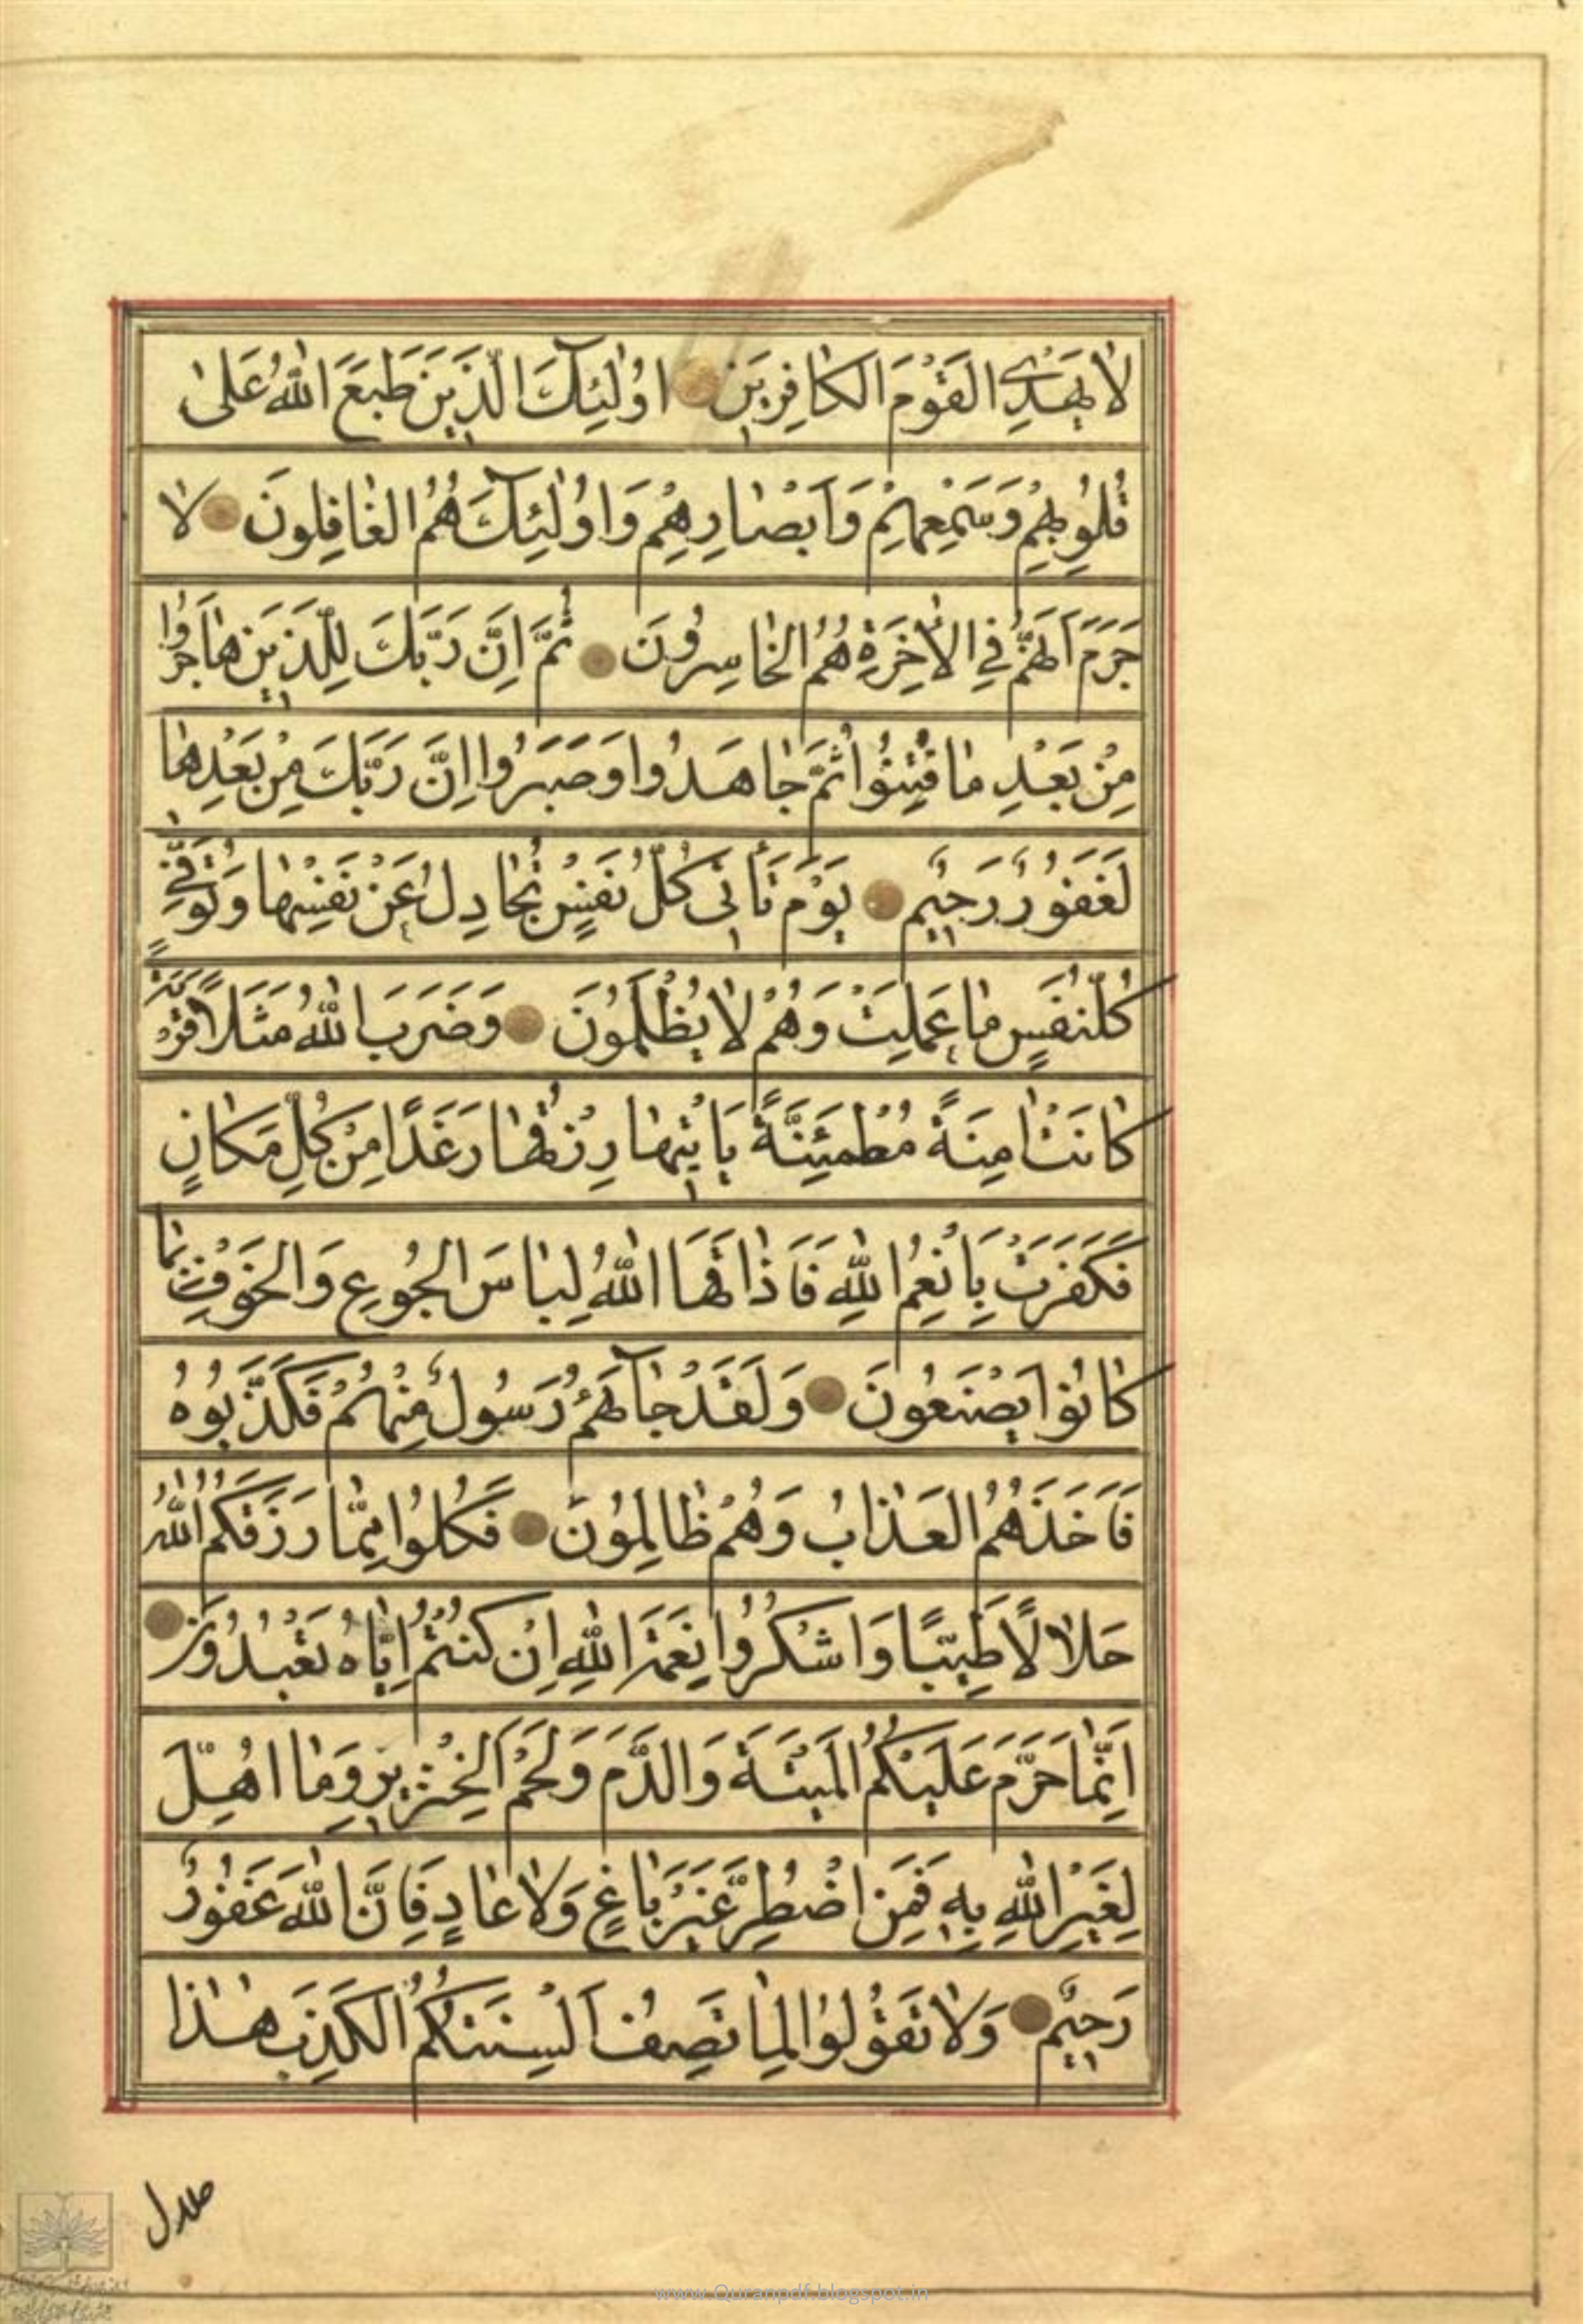 لَا يَهْدِي الْقَوْمَ الْكَافِرِينَ اُولٰئِكَ الَّذِينَ طَبَعَ اللهُ عَلىٰ
قُلُوبِهِمْ وَسَمْعِهِمْ وَاَبْصَارِهِمْ وَاُولٰئِكَ هُمُ الْغَافِلُونَ لَا
جَرَمَ اَنَّهُمْ فِي الْاٰخِرَةِ هُمُ الْخَاسِرُونَ ثُمَّ اِنَّ رَبَّكَ لِلَّذِينَ هَاجَرُوا
مِنْ بَعْدِ مَا فُتِنُوا ثُمَّ جَاهَدُوا وَصَبَرُوا اِنَّ رَبَّكَ مِنْ بَعْدِهَا
لَغَفُورٌ رَحِيمٌ يَوْمَ تَأْتِي كُلُّ نَفْسٍ تُجَادِلُ عَنْ نَفْسِهَا وَتُوَفّٰى
كُلُّ نَفْسٍ مَا عَمِلَتْ وَهُمْ لَا يُظْلَمُونَ وَضَرَبَ اللهُ مَثَلًا قَرْيَةً
كَانَتْ اٰمِنَةً مُطْمَئِنَّةً يَأْتِيهَا رِزْقُهَا رَغَدًا مِنْ كُلِّ مَكَانٍ
فَكَفَرَتْ بِاَنْعُمِ اللهِ فَاَذَاقَهَا اللهُ لِبَاسَ الْجُوعِ وَالْخَوْفِ بِمَا
كَانُوا يَصْنَعُونَ وَلَقَدْ جَآءَهُمْ رَسُولٌ مِنْهُمْ فَكَذَّبُوهُ
فَاَخَذَهُمُ الْعَذَابُ وَهُمْ ظَالِمُونَ فَكُلُوا مِمَّا رَزَقَكُمُ اللهُ
حَلَالًا طَيِّبًا وَاشْكُرُوا نِعْمَةَ اللهِ اِنْ كُنْتُمْ اِيَّاهُ تَعْبُدُونَ
اِنَّمَا حَرَّمَ عَلَيْكُمُ الْمَيْتَةَ وَالدَّمَ وَلَحْمَ الْخِنْزِيرِ وَمَا اُهِلَّ
لِغَيْرِ اللهِ بِهِ فَمَنِ اضْطُرَّ غَيْرَ بَاغٍ وَلَا عَادٍ فَاِنَّ اللهَ غَفُورٌ
رَحِيمٌ وَلَا تَقُولُوا لِمَا تَصِفُ اَلْسِنَتُكُمُ الْكَذِبَ هٰذَا
حلال
www.Quranpdf.blogspot.in